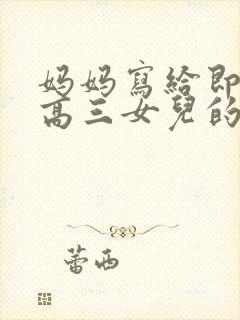 妈妈寫給即
高三女兒的
蕾西